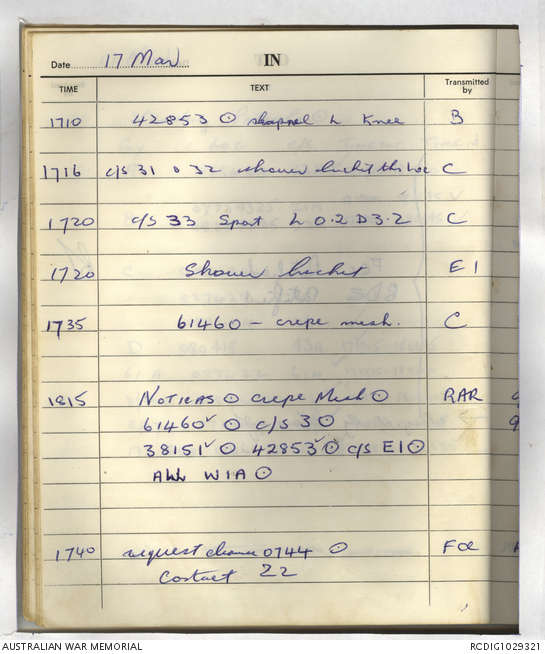 Date 17 Mar IN
TIME TEXT Transmitted by
1710 42853 ⊙ shapnel L Knee B
1716 c/S 31 o 32 shower bucket this loc C
1720 c/S 33 Spart L 0.2 D 3.2 C
1720 Shower bucket E 1
1735 61460 - crepe mesh. C
1815 NOTICAS ⊙ crepe Mesh ⊙ RAR
61460 ✓ ⊙ c/S 3 ⊙
38151 ✓ ⊙ 42853 ✓ ⊙ c/S E1 ⊙
ALL WIA ⊙
1740 request 0744 ⊙
Contact 22
AUSTRALIAN WAR MEMORIAL RCDIG1029321